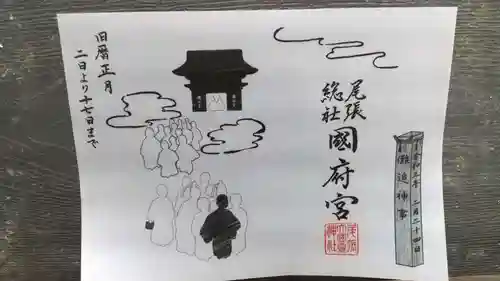 旧暦正月
二日より十七日まで
尾張
総社
國府宮
儺追神事
二月二十四日